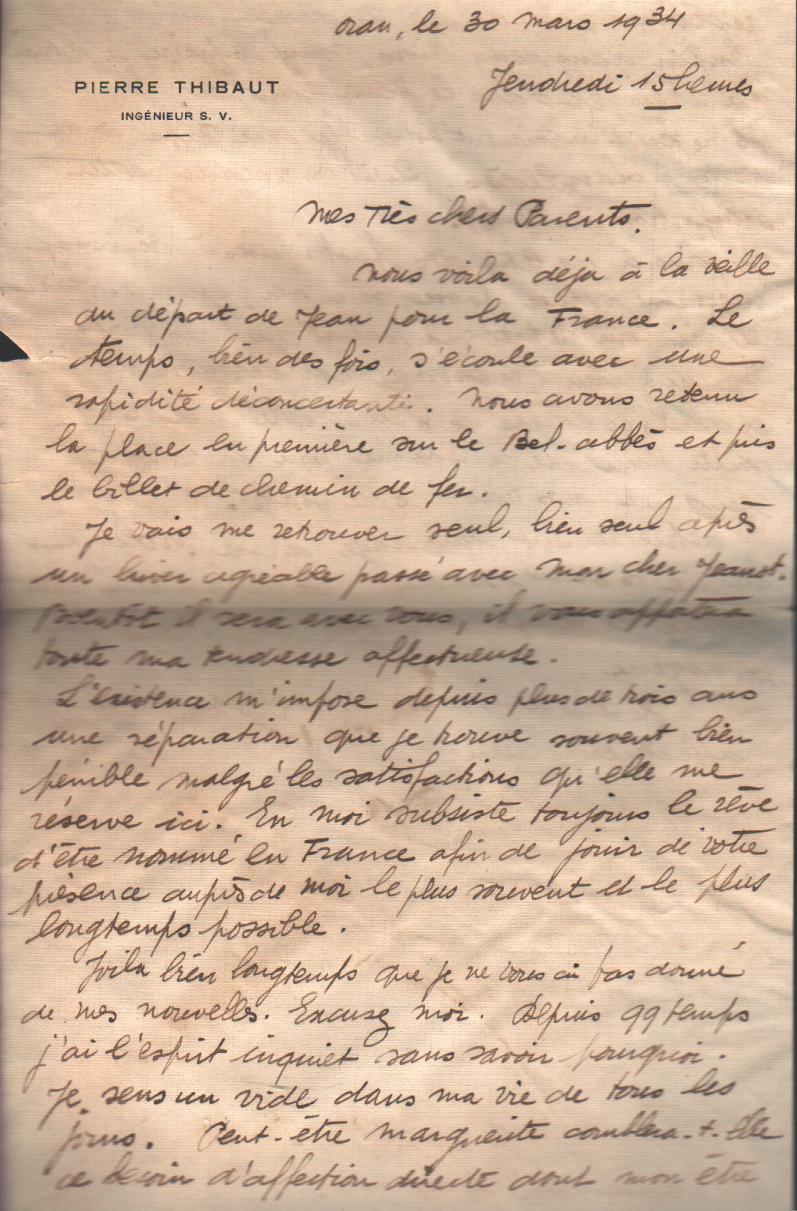 Oran, le 30 mars 1934
PIERRE THIBAUT
INGÉNIEUR S. V.
Vendredi 15 heures
Mes Très chers Parents.
Nous voila déja à la veille
du départ de Jean pour la France. Le
temps, bien des fois, s'écoule avec une
rapidité déconcertante. Nous avons retenu
la place en première sur le Bel-abbès et pris
le billet de chemin de fer.
Je vais me retrouver seul, bien seul après
un hiver agréable passé avec mon cher Jeanot.
Bientôt il sera avec vous, il vous apportera
toute ma tendresse affectueuse.
L'existence m'impose depuis plus de trois ans
une séparation que je trouve souvent bien
pénible malgré les satisfactions qu'elle me
réserve ici. En moi subsiste toujours le rêve
d'être nommé en France afin de jouir de votre
présence auprès de moi le plus souvent et le plus
longtemps possible.
Voila bien longtemps que je ne vous ai pas donné
de mes nouvelles. Excusez moi. Depuis qq temps
j'ai l'esprit inquiet sans savoir pourquoi.
Je sens un vide dans ma vie de tous les
jours. Peut-être Marguerite comblera-t-elle
ce besoin d'affection directe dont mon être